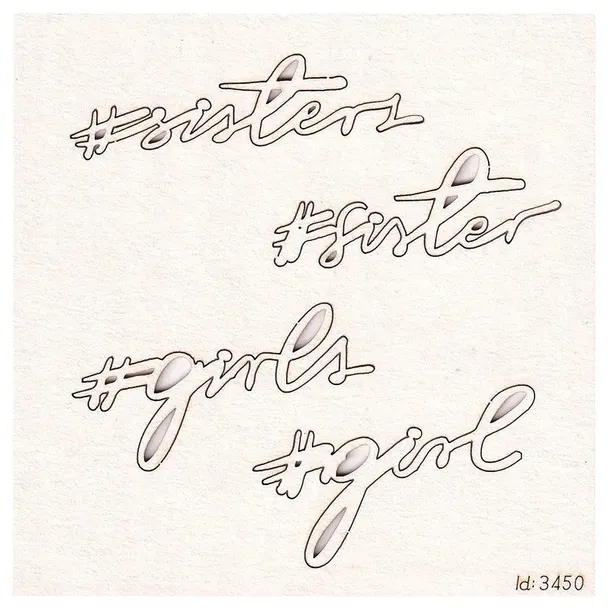 #sisters
#sister
#girls
#girl
Id: 3450